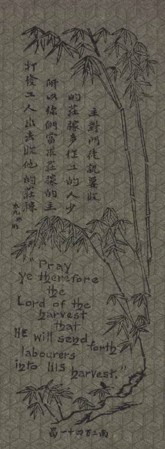 主對門徒說要收
的莊稼多作工的人少
所以你們當求莊稼的主
打發工人出去收他的莊稼
"Pray
ye therefore
the
Lord of the
harvest
that
HE will send
forth
labourers
into HIS harvest."